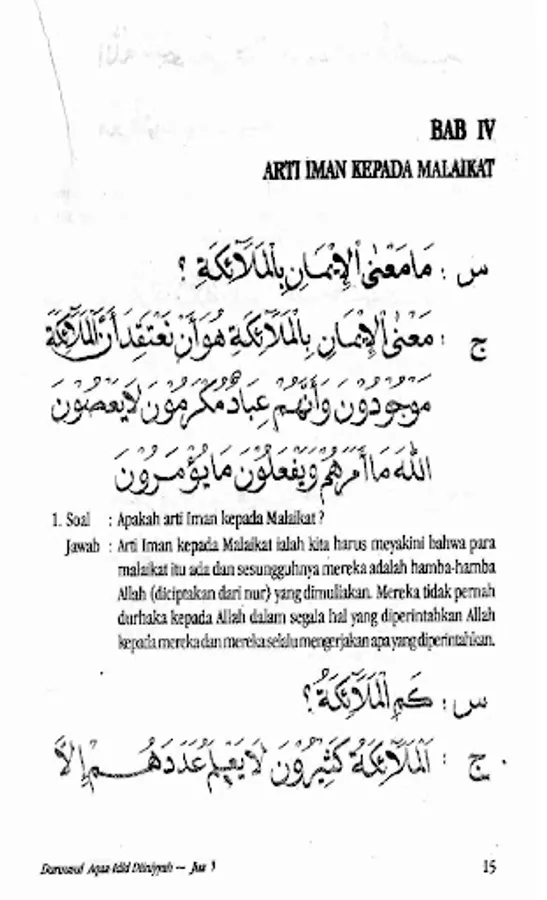 BAB IV
ARTI IMAN KEPADA MALAIKAT
س : مَا مَعْنَى الْإِيْمَانِ بِالْمَلَآئِكَةِ ؟
ج : مَعْنَى الْإِيْمَانِ بِالْمَلَآئِكَةِ هُوَ أَنْ نَعْتَقِدَ أَنَّ الْمَلَآئِكَةَ
مَوْجُوْدُوْنَ وَأَنَّهُمْ عِبَادٌ مُكْرَمُوْنَ لَا يَعْصُوْنَ
اللهَ مَا أَمَرَهُمْ وَيَفْعَلُوْنَ مَا يُؤْمَرُوْنَ
1. Soal : Apakah arti Iman kepada Malaikat ?
Jawab : Arti Iman kepada Malaikat ialah kita harus meyakini bahwa para
malaikat itu ada dan sesungguhnya mereka adalah hamba-hamba
Allah (diciptakan dari nur) yang dimuliakan. Mereka tidak pernah
durhaka kepada Allah dalam segala hal yang diperintahkan Allah
kepada mereka dan mereka selalu mengerjakan apa yang diperintahkan.
س : كَمِ الْمَلَآئِكَةُ ؟
ج : اَلْمَلَآئِكَةُ كَثِيْرُوْنَ لَا يَعْلَمُ عَدَدَهُمْ إِلَّا
Durusul Aqaa-idid Diiniyyah — Juz 15